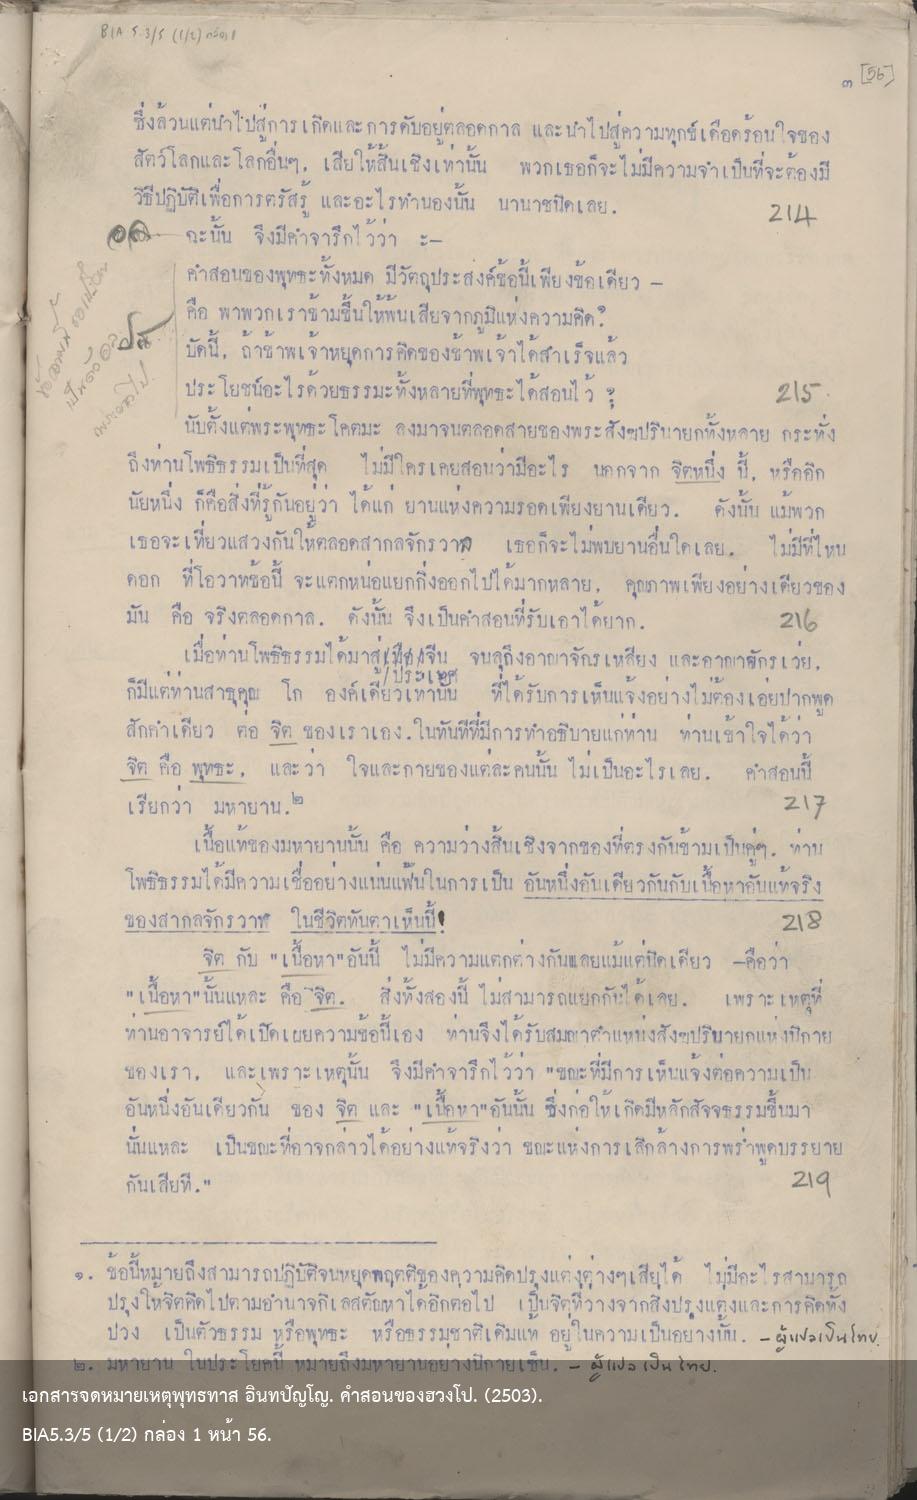 BIA 5.3/5 (1/2) กล่อง 1
๓ [56]
ซึ่งล้วนแต่นำไปสู่การเกิดและการดับอยู่ตลอดกาล และนำไปสู่ความทุกข์เดือดร้อนใจของ
สัตว์โลกและโลกอื่นๆ, เสียให้สิ้นเชิงเท่านั้น พวกเธอก็จะไม่มีความจำเป็นที่จะต้องมี
วิธีปฏิบัติเพื่อการตรัสรู้ และอะไรทำนองนั้น นานาชนิดเลย. 214
ฉะนั้น จึงมีคำจารึกไว้ว่า :-
คำสอนของพุทธะทั้งหมด มีวัตถุประสงค์ข้อนี้เพียงข้อเดียว -
คือ พาพวกเราข้ามขึ้นให้พ้นเสียจากภูมิแห่งความคิด.
บัดนี้, ถ้าข้าพเจ้าหยุดการคิดของข้าพเจ้าได้สำเร็จแล้ว
ประโยชน์อะไรด้วยธรรมะทั้งหลายที่พุทธะได้สอนไว้ ? 215
นับตั้งแต่พระพุทธะโคตมะ ลงมาจนตลอดสายของพระสังฆปรินายกทั้งหลาย กระทั่ง
ถึงท่านโพธิธรรมเป็นที่สุด ไม่มีใครเคยสอนว่ามีอะไร นอกจาก จิตหนึ่ง นี้, หรืออีก
นัยหนึ่ง ก็คือสิ่งที่รู้กันอยู่ว่า ได้แก่ ยานแห่งความรอดเพียงยานเดียว. ดังนั้น แม้พวก
เธอจะเที่ยวแสวงกันให้ตลอดสากลจักรวาล เธอก็จะไม่พบยานอื่นใดเลย. ไม่มีที่ไหน
ดอก ที่โอวาทข้อนี้ จะแตกหน่อแยกกิ่งออกไปได้มากหลาย, คุณภาพเพียงอย่างเดียวของ
มัน คือ จริงตลอดกาล. ดังนั้น จึงเป็นคำสอนที่รับเอาได้ยาก. 216
เมื่อท่านโพธิธรรมได้มาสู่/เมือง/จีน จนลุถึงอาณาจักรเหลียง และอาณาจักรเว่ย,
/ประเทศ
ก็มีแต่ท่านสาธุคุณ โก องค์เดียวเท่านั้น ที่ได้รับการเห็นแจ้งอย่างไม่ต้องเอ่ยปากพูด
สักคำเดียว ต่อ จิต ของเราเอง.ในทันทีที่มีการทำอธิบายแก่ท่าน ท่านเข้าใจได้ว่า
จิต คือ พุทธะ, และว่า ใจและกายของแต่ละคนนั้น ไม่เป็นอะไรเลย. คำสอนนี้
เรียกว่า มหายาน.๒ 217
เนื้อแท้ของมหายานนั้น คือ ความว่างสิ้นเชิงจากของที่ตรงกันข้ามเป็นคู่ๆ. ท่าน
โพธิธรรมได้มีความเชื่ออย่างแน่นแฟ้นในการเป็น อันหนึ่งอันเดียวกันกับเนื้อหาอันแท้จริง
ของสากลจักรวาฬ ในชีวิตทันตาเห็นนี้! 218
จิต กับ "เนื้อหา"อันนี้ ไม่มีความแตกต่างกันเลยแม้แต่นิดเดียว -คือว่า
"เนื้อหา"นั้นแหละ คือ จิต. สิ่งทั้งสองนี้ ไม่สามารถแยกกันได้เลย. เพราะเหตุที่
ท่านอาจารย์ได้เปิดเผยความข้อนี้เอง ท่านจึงได้รับสมญาตำแหน่งสังฆปรินายกแห่งนิกาย
ของเรา, และเพราะเหตุนั้น จึงมีคำจารึกไว้ว่า "ขณะที่มีการเห็นแจ้งต่อความเป็น
อันหนึ่งอันเดียวกัน ของ จิต และ "เนื้อหา"อันนั้น ซึ่งก่อให้เกิดมีหลักสัจจธรรมขึ้นมา
นั่นแหละ เป็นขณะที่อาจกล่าวได้อย่างแท้จริงว่า ขณะแห่งการเลิกล้างการพร่ำพูดบรรยาย
กันเสียที." 219
๑. ข้อนี้หมายถึงสามารถปฏิบัติจนหยุดพฤตติของความคิดปรุงแต่งต่างๆเสียได้ ไม่มีอะไรสามารถ
ปรุงให้จิตคิดไปตามอำนาจกิเลสตัณหาได้อีกต่อไป เป็นจิตที่ว่างจากสิ่งปรุงแต่งและการคิดทั้ง
ปวง เป็นตัวธรรม หรือพุทธะ หรือธรรมชาติเดิมแท้ อยู่ในความเป็นอย่างนั้น. - ผู้แปลเป็นไทย.
๒. มหายาน ในประโยคนี้ หมายถึงมหายานอย่างนิกายเซ็น. - ผู้แปลเป็นไทย.
เอกสารจดหมายเหตุพุทธทาส อินทปัญโญ. คำสอนของฮวงโป. (2503).
BIA5.3/5 (1/2) กล่อง 1 หน้า 56.